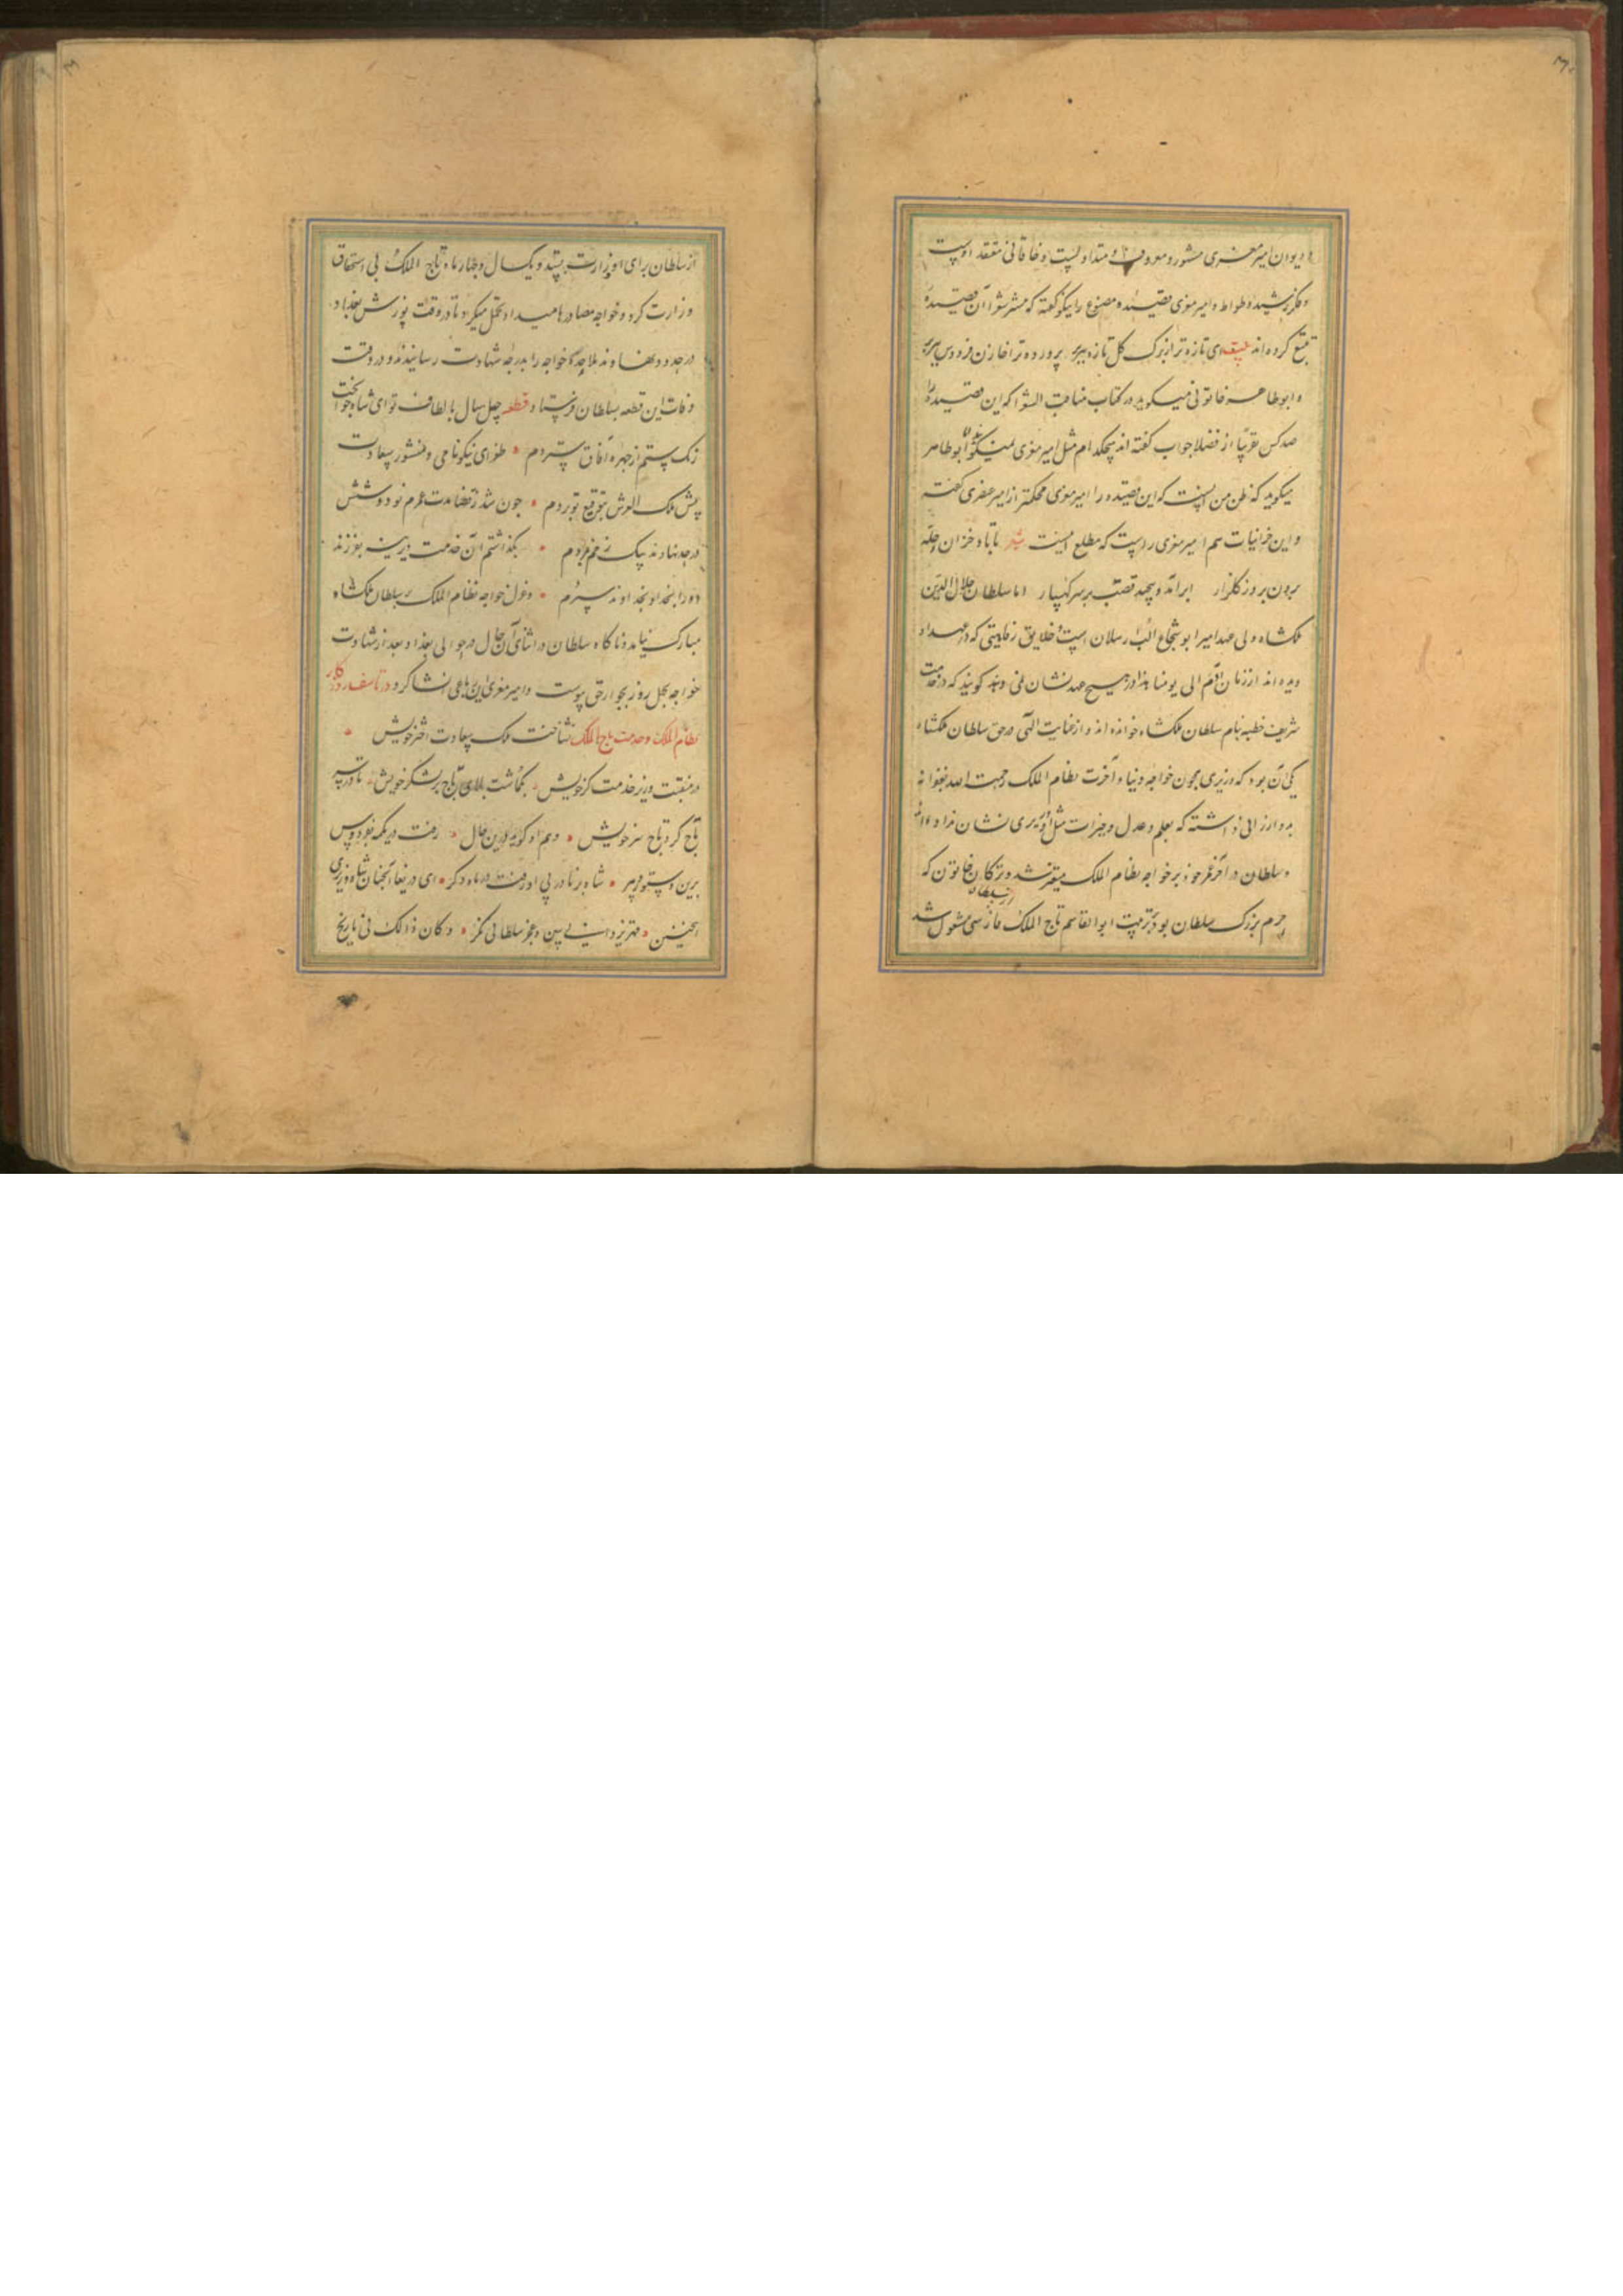 و دیوان امیر معزی مشهور و معروفست و متداولست و خاقانی معتقد اوست
و مکر رشید وطواط و امیر معزی قصیده مصنوع را نیکو گفته که بیشتر شعرا آن قصیده
تتبع کرده‌اند ای تازه تر از برک کل تازه ببر بر پرورده ترا خازن فردوس ببر بر
و ابوطاهر خاتونی میگوید در کتاب مناقب الشعرا که این قصیده را
صد کس تقریبا از فضلا جواب گفته اند هیچکدام مثل امیر معزی نمیگوید ابوطاهر
میگوید که ظن من اینست که این قصیده را امیر معزی محکمتر از امیر عنصری گفته
و این خزانیات هم امیر معزی راست که مطلع اینست شعر تا باد خزان حله
برون برد ز کلزار ابر آمد و پیچید قصب بر سر کهسار اما سلطان جلال الدین
ملکشاه ولی عهد امیر ابو شجاع الب ارسلان است و خلایق رفاهیتی که در عهد او
دیده اند از زمان آدم الی یومنا هذا در هیچ عهد نشان نمی دهند کویند که در خدمت
شریف خطبه بنام سلطان ملکشاه خوانده اند و از عنایت الهی در حق سلطان ملکشاه
یکی آن بود که وزیری همچون خواجه دنیا و آخرت نظام الملک رحمت الله بغفرانه
بدو ارزانی داشته که بعلم و عدل و خیرات مثل او وزیری نشان نداده اند
و سلطان در آخر عمر خود بر خواجه نظام الملک متغیر شد و ترکان خاتون که
حرم بزرک سلطان بود بتربیت ابوالقاسم تاج الملک فارسی مشغول شد
از سلطان
از سلطان برای او وزارت بستد و یکسال و چهار ماه تاج الملک بی استحقاق
وزارت کرد و خواجه مصادرها میداد و تحمل میکرد تا در وقت یورش بغداد
در حدود نهاوند ملاحده خواجه را بدرجه شهادت رسانیدند و در وقت
وفات این قطعه بسلطان فرستاد قطعه چل سال بالطاف تو ای شاه جوانبخت
زنک ستم از چهره آفاق ستردم طغرای نیکونامی و منشور سعادت
پیش ملک العرش بتوقیع تو بردم چون شد ز قضا مدت عمرم نود و شش
در حد نهاوند بیک زخم بمردم بکذاشتم آن خدمت دیرینه بفرزند
او را بخدا و بخداوند سپردم و عزل خواجه نظام الملک بر سلطان ملکشاه
مبارک نیامد و ناکاه سلطان در اثنای آن حال در حوالی بغداد بعد از شهادت
خواجه بچهل روز بجوار حق پیوست و امیر معزی این رباعی انشا کرد در تاسف روزگار
نظام الملک و خدمت تاج الملک نشناخت ملک سعادت اختر خویش
در منقبت وزیر خدمت گر خویش بگماشت بلای تاج بر لشکر خویش تا در سر
تاج کرد تاج سر خویش و هم او گوید درین حال رفت در یکمه بفردوس
برین دستور پیر شاه برنا در پی او رفت در ماه دکر ای دریغا آنچنان شاه و وزیری
اینچنین قهر یزدانی ببین و عجز سلطانی نکر و کان ذالک فی تاریخ